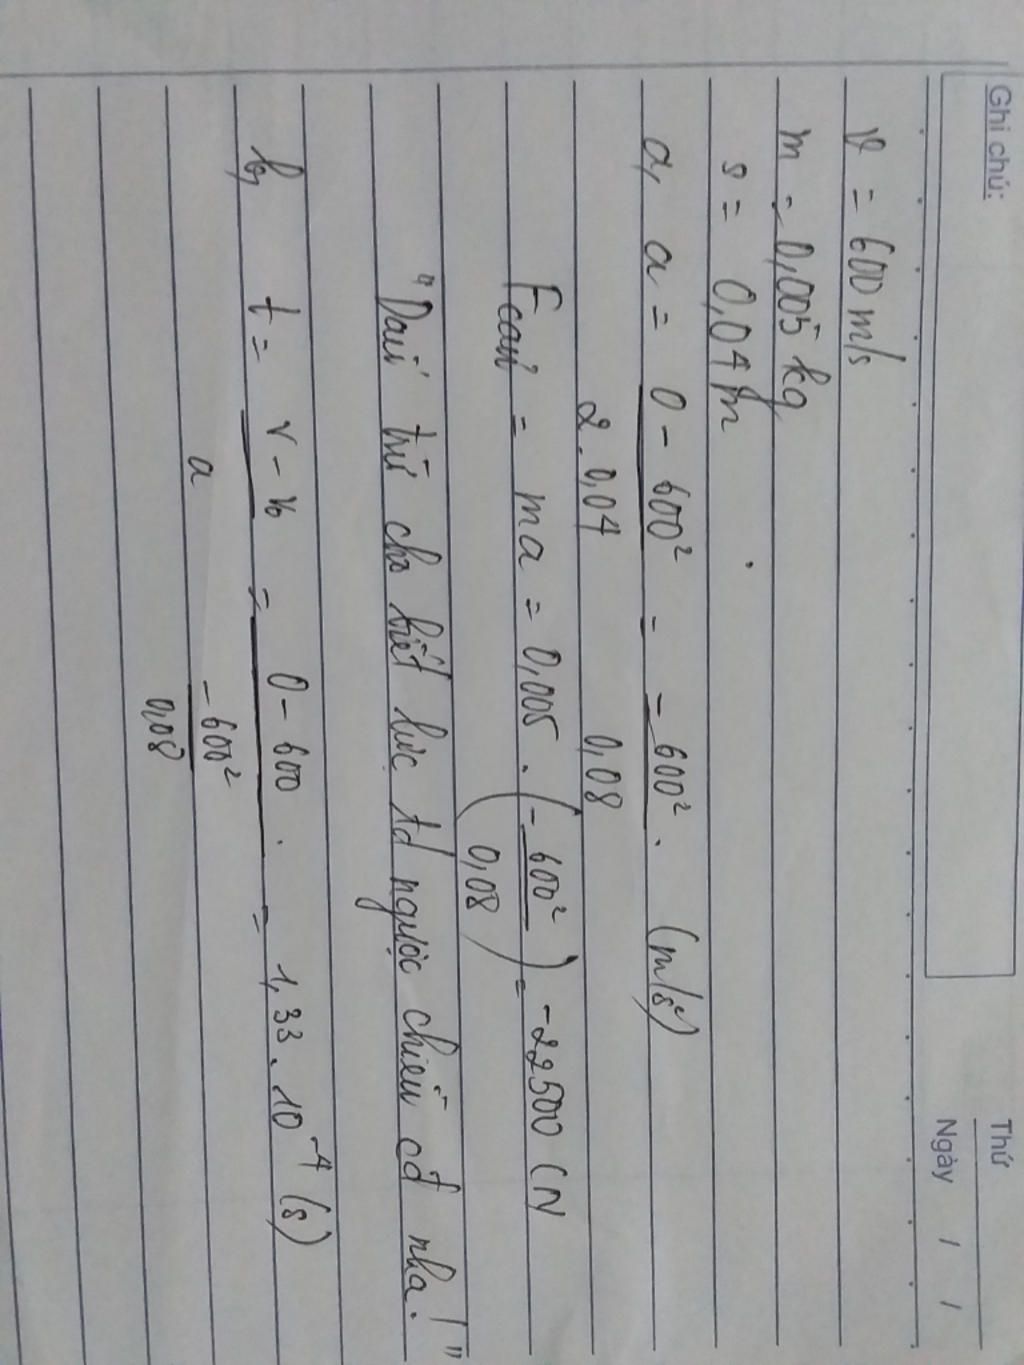 Ghi chú:
Thứ
Ngày / /
v = 600 m/s
m = 0,005 kg
s = 0,04 m
a, a = (0 - 600²)/(2.0,04) = (-600²)/(0,08) (m/s²)
Fcản = ma = 0,005 . (-600²/0,08) = -22500 (N
"Dấu trừ cho biết lực td ngược chiều cđ nha!"
b, t = (v - v₀)/a = (0 - 600)/(-600²/0,08) = 1,33.10⁻⁴ (s)